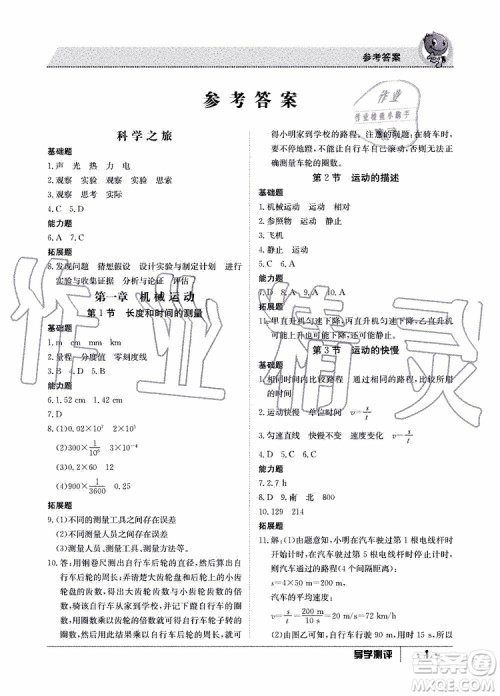 参考答案
参考答案
科学之旅
基础题
1.声 光 热 力 电
2.观察 实验 观察 实验 观察 实验
4.C 5.D
能力题
6.A 7.C
拓展题
8.发现问题 猜想假设 设计实验与制定计划 进行实
验与收集证据 分析与论证 评估
第一章 机械运动
第1节 长度和时间的测量
基础题
1.m cm mm
2.量程 分度值 零刻度线
能力题
6.1.52 cm
7.D
8.(1)0.02×10⁶ 2×10⁷
(2)300×1/10⁶ 3×10⁻⁴
(4)900×1/3600 0.25
拓展题
9.(1)不同的测量工具之间存在误差
(2)不同的测量工具之间存在误差
10.答:用钢卷尺测量出自行车后轮的直径,然后算出自
行车后轮的周长;弄清楚大齿轮盘和小齿轮盘的齿轮
数,并算出大齿轮盘齿轮数与小齿轮盘齿轮数的倍
数,骑自行车从家到学校,数出大齿轮盘转动的圈数,
大齿轮盘转动的圈数乘以大齿轮盘与小齿轮盘的倍
数就是自行车后轮转动的圈数,后轮圈数乘以周长可
得小明家到学校的路程。存在的问题:在骑车时,不
能有滑行、急停等情况,因为这些情况的出现不能正
确测量出车轮的圈数。
第2节 运动的描述
基础题
1.机械运动 运动 相对
2.参照物 运动 静止
3.飞机
4.静止 运动
5.C 6.A
能力题
8.D 9.A 10.A
拓展题
11.甲直升机匀速下降,丙直升机匀速下降,乙直升机可
能静止、可能匀速上升、可能匀速下降
第3节 运动的快慢
基础题
1.相同时间内比较物体通过的路程,相同的路程比较所用
的时间
2.运动快慢 单位时间 v=s/t
3.匀速直线 快慢不变 运动方向 v=s/t
4.D 5.C 6.C
能力题
7.2.7 h
8.D 9.南 北 800
10.129 214
拓展题
11.解:(1)由题意知,小明在汽车驶过第1根电线杆时
开始计时,到车驶过第5根电线杆时停止计时,
则汽车通过的路程(4个间隔距离):
s=4×50 m=200 m
汽车的平均速度:
v=s/t=200 m/10 s=20 m/s
(2)由图(乙)可知,自行车行驶的路程和时间成正
导学测评
1
作业精灵
答案圈